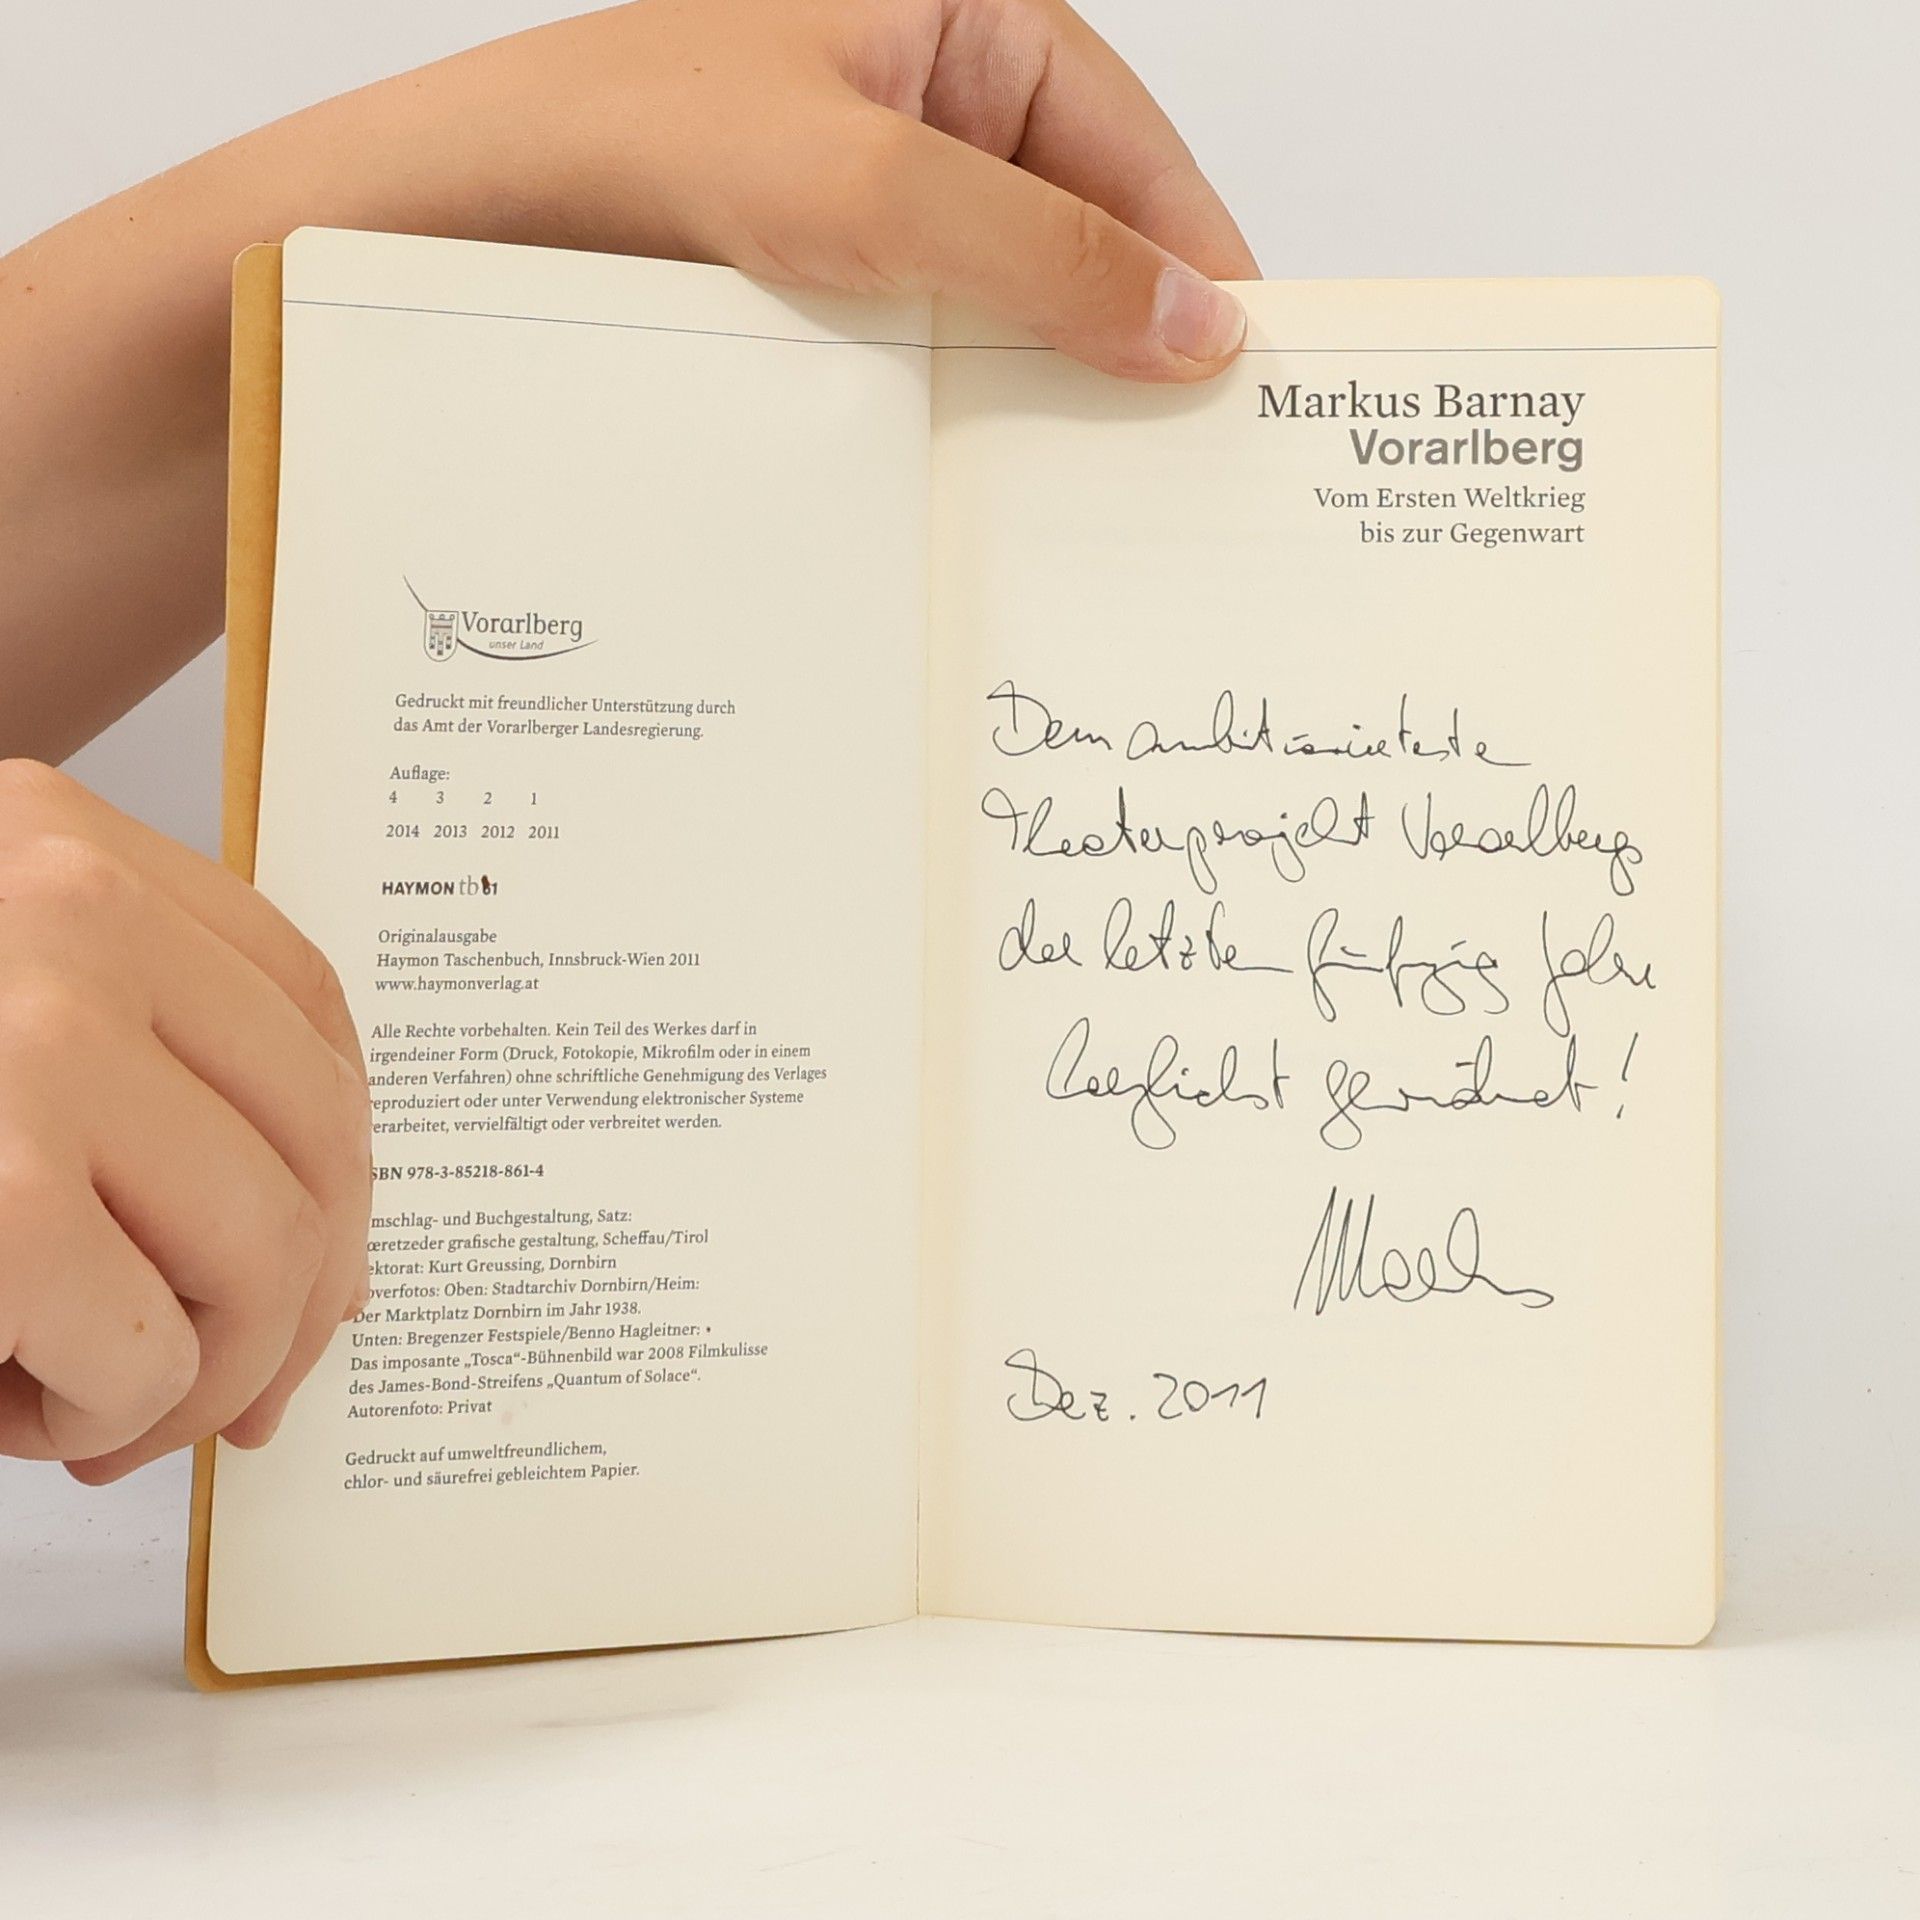 Vorarlberg
unser Land
Gedruckt mit freundlicher Unterstützung durch
das Amt der Vorarlberger Landesregierung.
Auflage:
4 3 2 1
2014 2013 2012 2011
HAYMON tb 61
Originalausgabe
Haymon Taschenbuch, Innsbruck-Wien 2011
www.haymonverlag.at
Alle Rechte vorbehalten. Kein Teil des Werkes darf in
irgendeiner Form (Druck, Fotokopie, Mikrofilm oder in einem
anderen Verfahren) ohne schriftliche Genehmigung des Verlages
reproduziert oder unter Verwendung elektronischer Systeme
erarbeitet, vervielfältigt oder verbreitet werden.
SBN 978-3-85218-861-4
mschlag- und Buchgestaltung, Satz:
œretzeder grafische gestaltung, Scheffau/Tirol
ektorat: Kurt Greussing, Dornbirn
overfotos: Oben: Stadtarchiv Dornbirn/Heim:
Der Marktplatz Dornbirn im Jahr 1938.
Unten: Bregenzer Festspiele/Benno Hagleitner:
Das imposante „Tosca“-Bühnenbild war 2008 Filmkulisse
des James-Bond-Streifens „Quantum of Solace“.
Autorenfoto: Privat
Gedruckt auf umweltfreundlichem,
chlor- und säurefrei gebleichtem Papier.
Markus Barnay
Vorarlberg
Vom Ersten Weltkrieg
bis zur Gegenwart
Dem ambitionierteste
Theaterprojekt Vorarlbergs
der letzten fünfzig Jahre
herzlichst gewidmet!
Markus
Dez. 2011